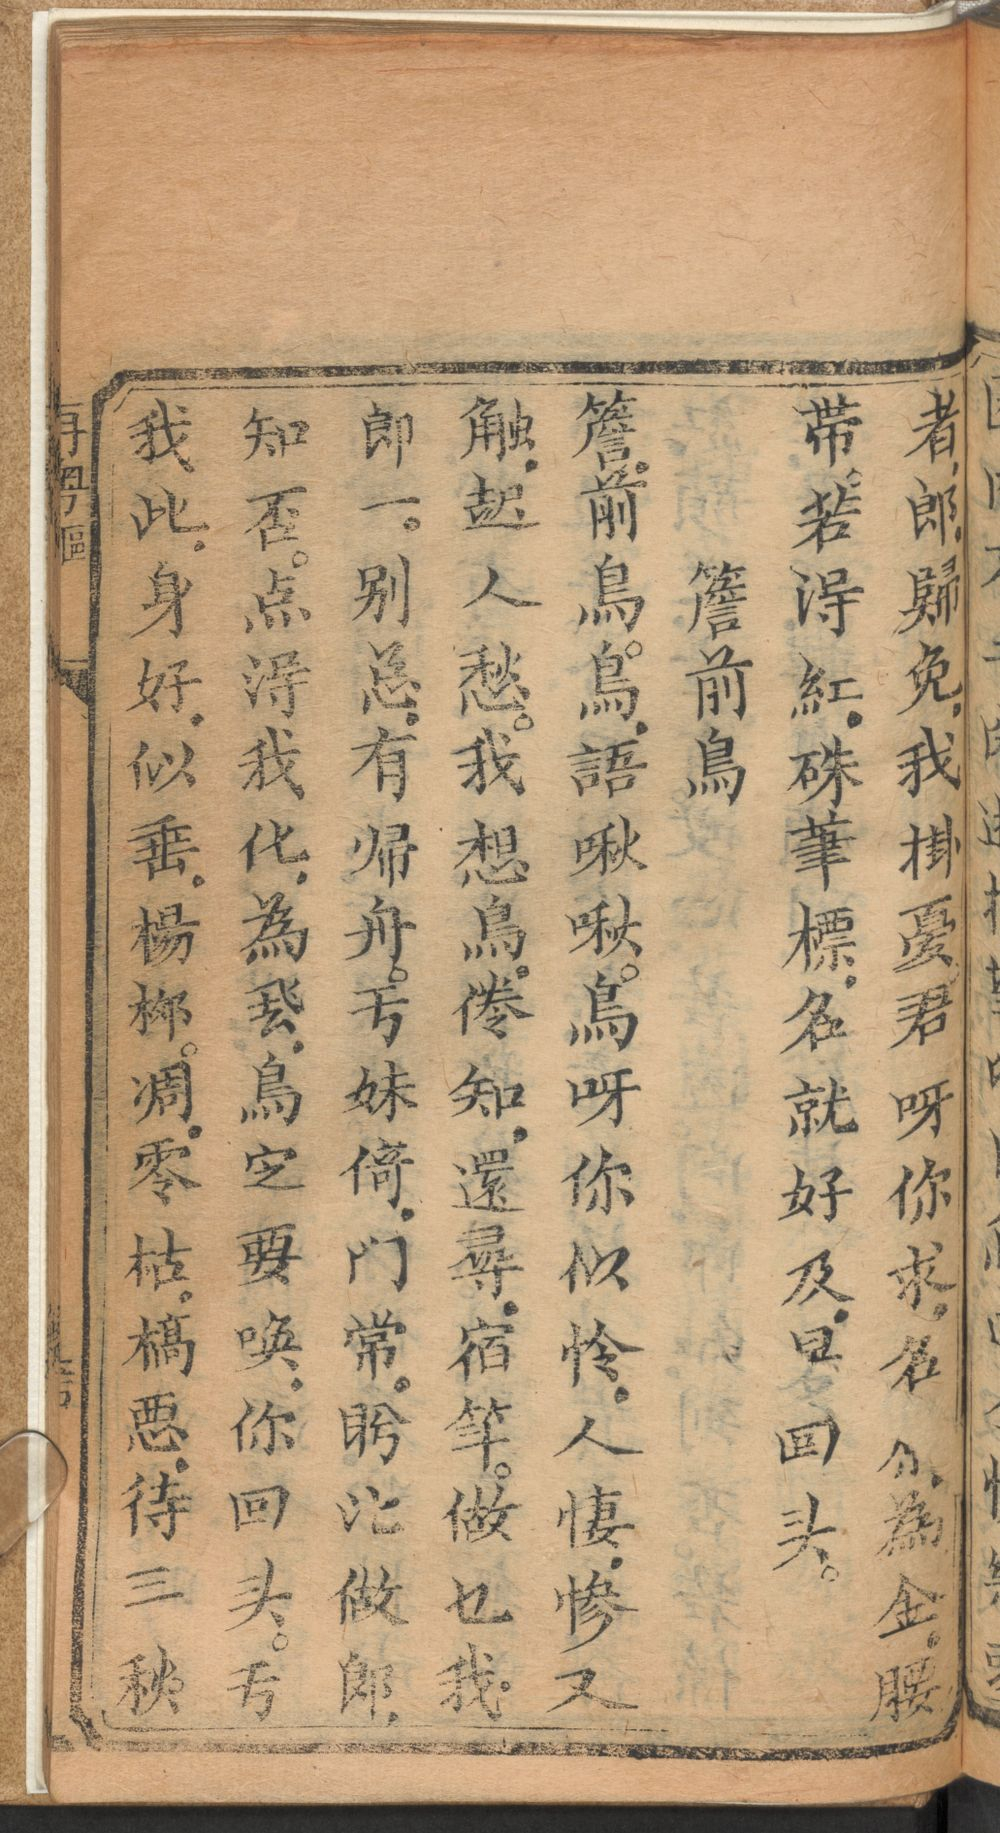 者郎歸免我掛憂君呀你求名分為金腰
带若淂紅硃筆標名就好及早回头
簷前鳥
簷前鳥鳥語啾啾鳥呀你似怜人悽惨又
触起人愁我想鳥倦知还尋宿竿做乜我
郎一别总有帰舟丐妹倚門常盻㳂做郎
知否点淂我化為飛鳥定要唤你回头丐
我此身好似垂楊柳凋零枯槁恶待三秋
再粤謳